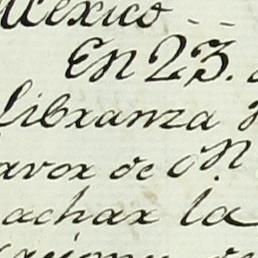 Mexico --
En 23.
libranza
avor de Dn.
achar la